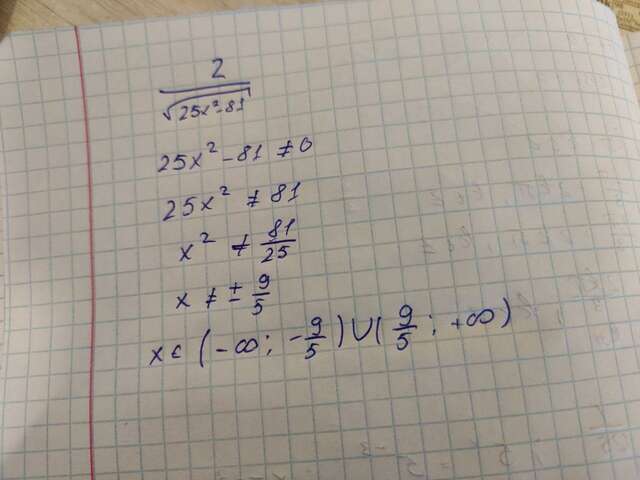 2/√(25x²-81)
25x² - 81 ≠ 0
25x² ≠ 81
x² ≠ 81/25
x ≠ ± 9/5
x ∈ (-∞; -9/5) ∪ (9/5; +∞)